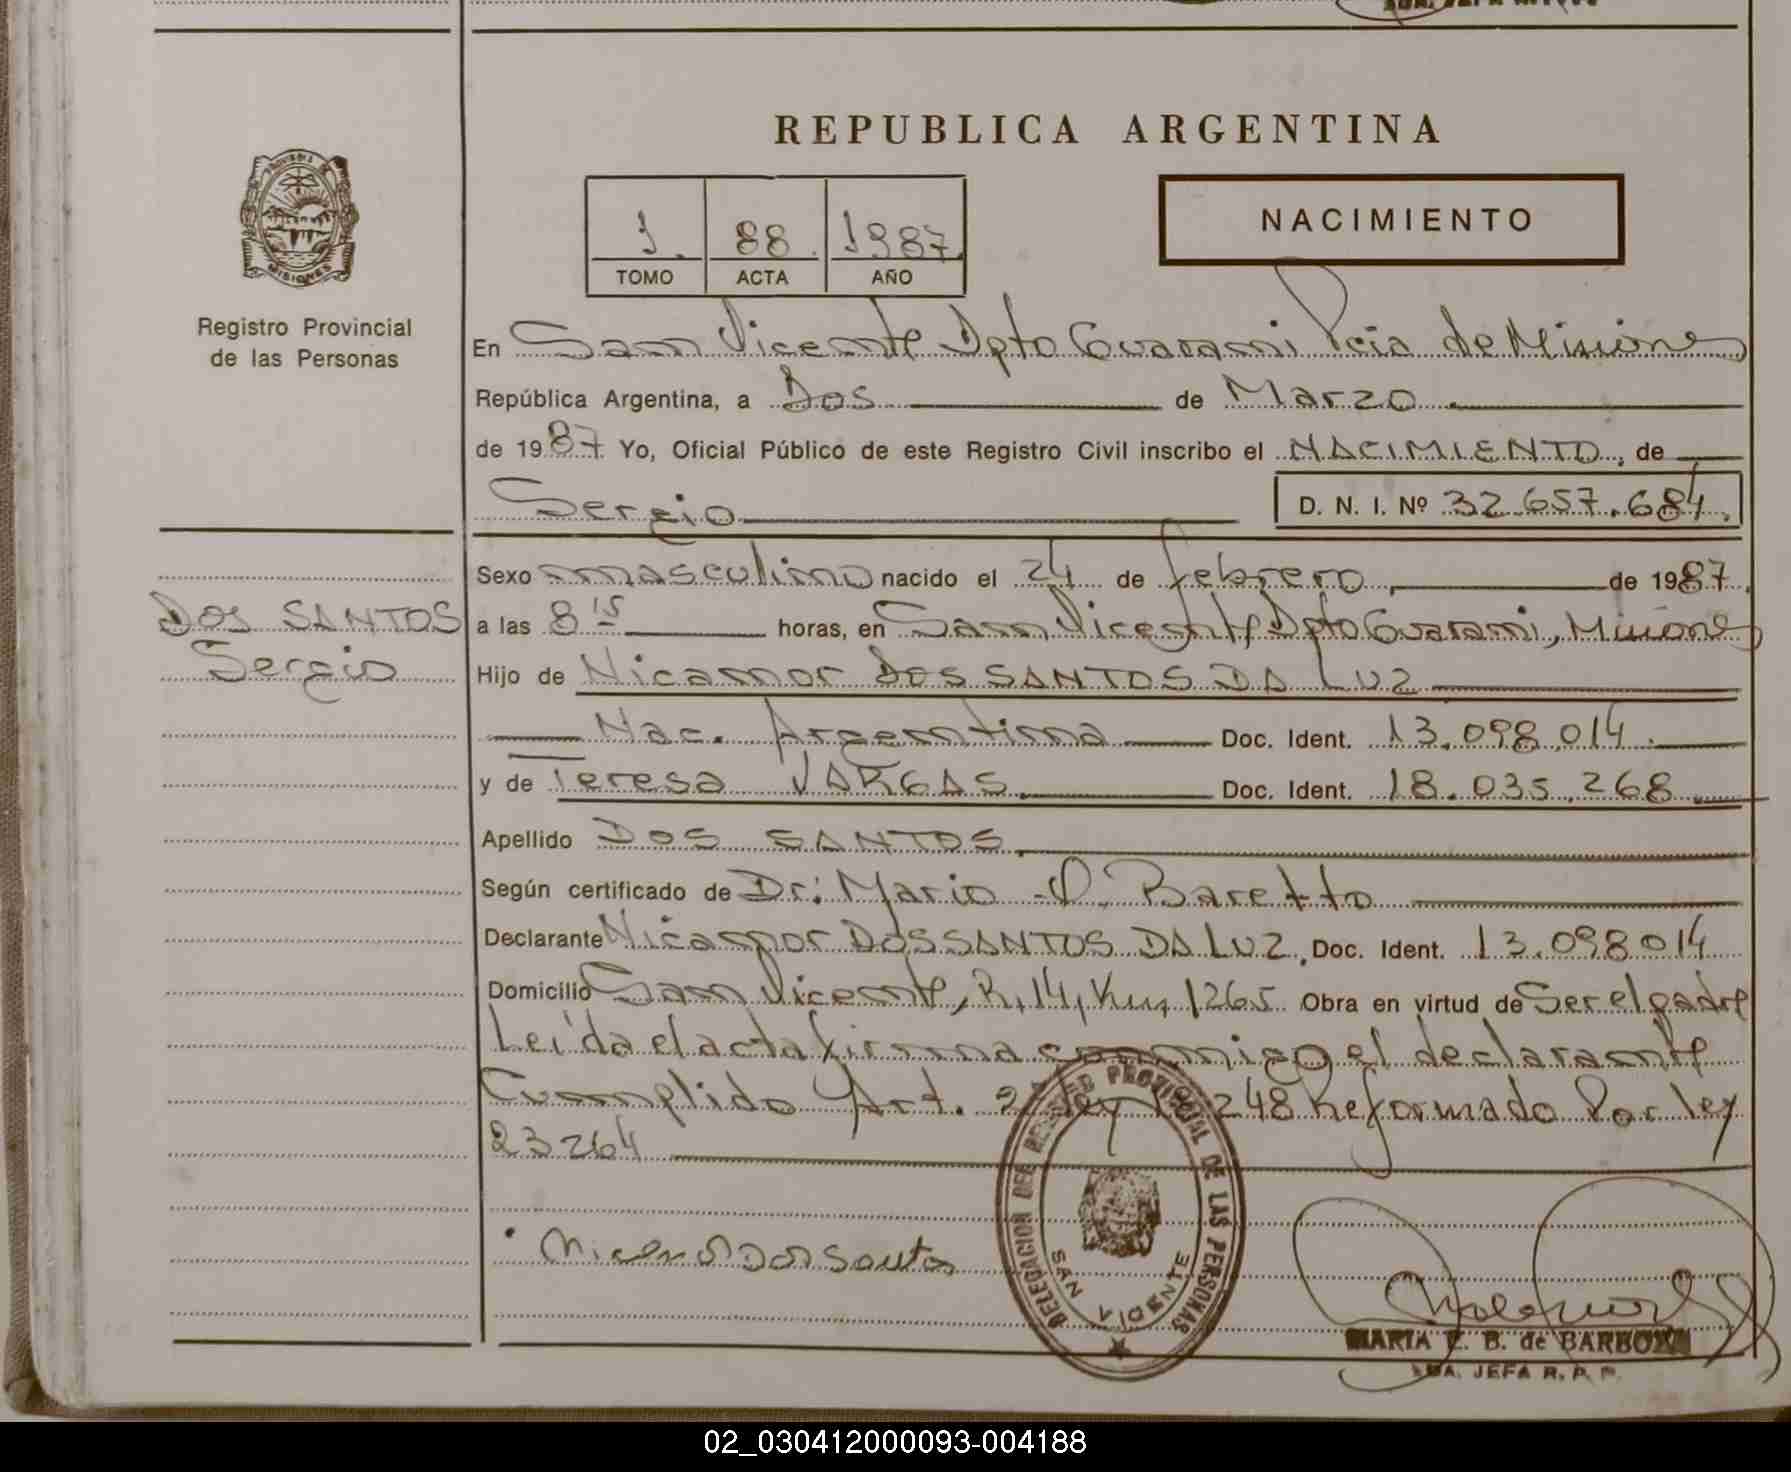 REPUBLICA ARGENTINA
PROVINCIA DE
MISIONES
Registro Provincial
de las Personas
1. 88. 1987.
TOMO ACTA AÑO
NACIMIENTO
En San Vicente Dpto Guarani Pcia de Misiones
República Argentina, a Dos de Marzo
de 1987 Yo, Oficial Público de este Registro Civil inscribo el NACIMIENTO, de
Sergio D. N. I. Nº 32.657.684.
Sexo masculino nacido el 24 de febrero de 1987.
DOS SANTOS
Sergio
a las 8 15 horas, en San Vicente, Dpto Guarani, Misiones
Hijo de Nicanor DOS SANTOS DA LUZ
Nac. Argentina Doc. Ident. 13.098.014.
y de Teresa VARGAS. Doc. Ident. 18.035.268
Apellido DOS SANTOS.
Según certificado de Dr: Mario Baretto
Declarante Nicanor DOS SANTOS DA LUZ. Doc. Ident. 13.098014
Domicilio San Vicente, R, 14, Km, 1265 Obra en virtud de Ser el padre
Leída el acta firma conmigo el declarante
Cumplido Art. 2 Ley 248 Reformado Por ley
23264
DELEGACION DEL REGISTRO PROVINCIAL DE LAS PERSONAS
SAN VICENTE
Dos Santos
MARIA E. B. de BARBOZA
JEFA R. P. P.
02_030412000093-004188